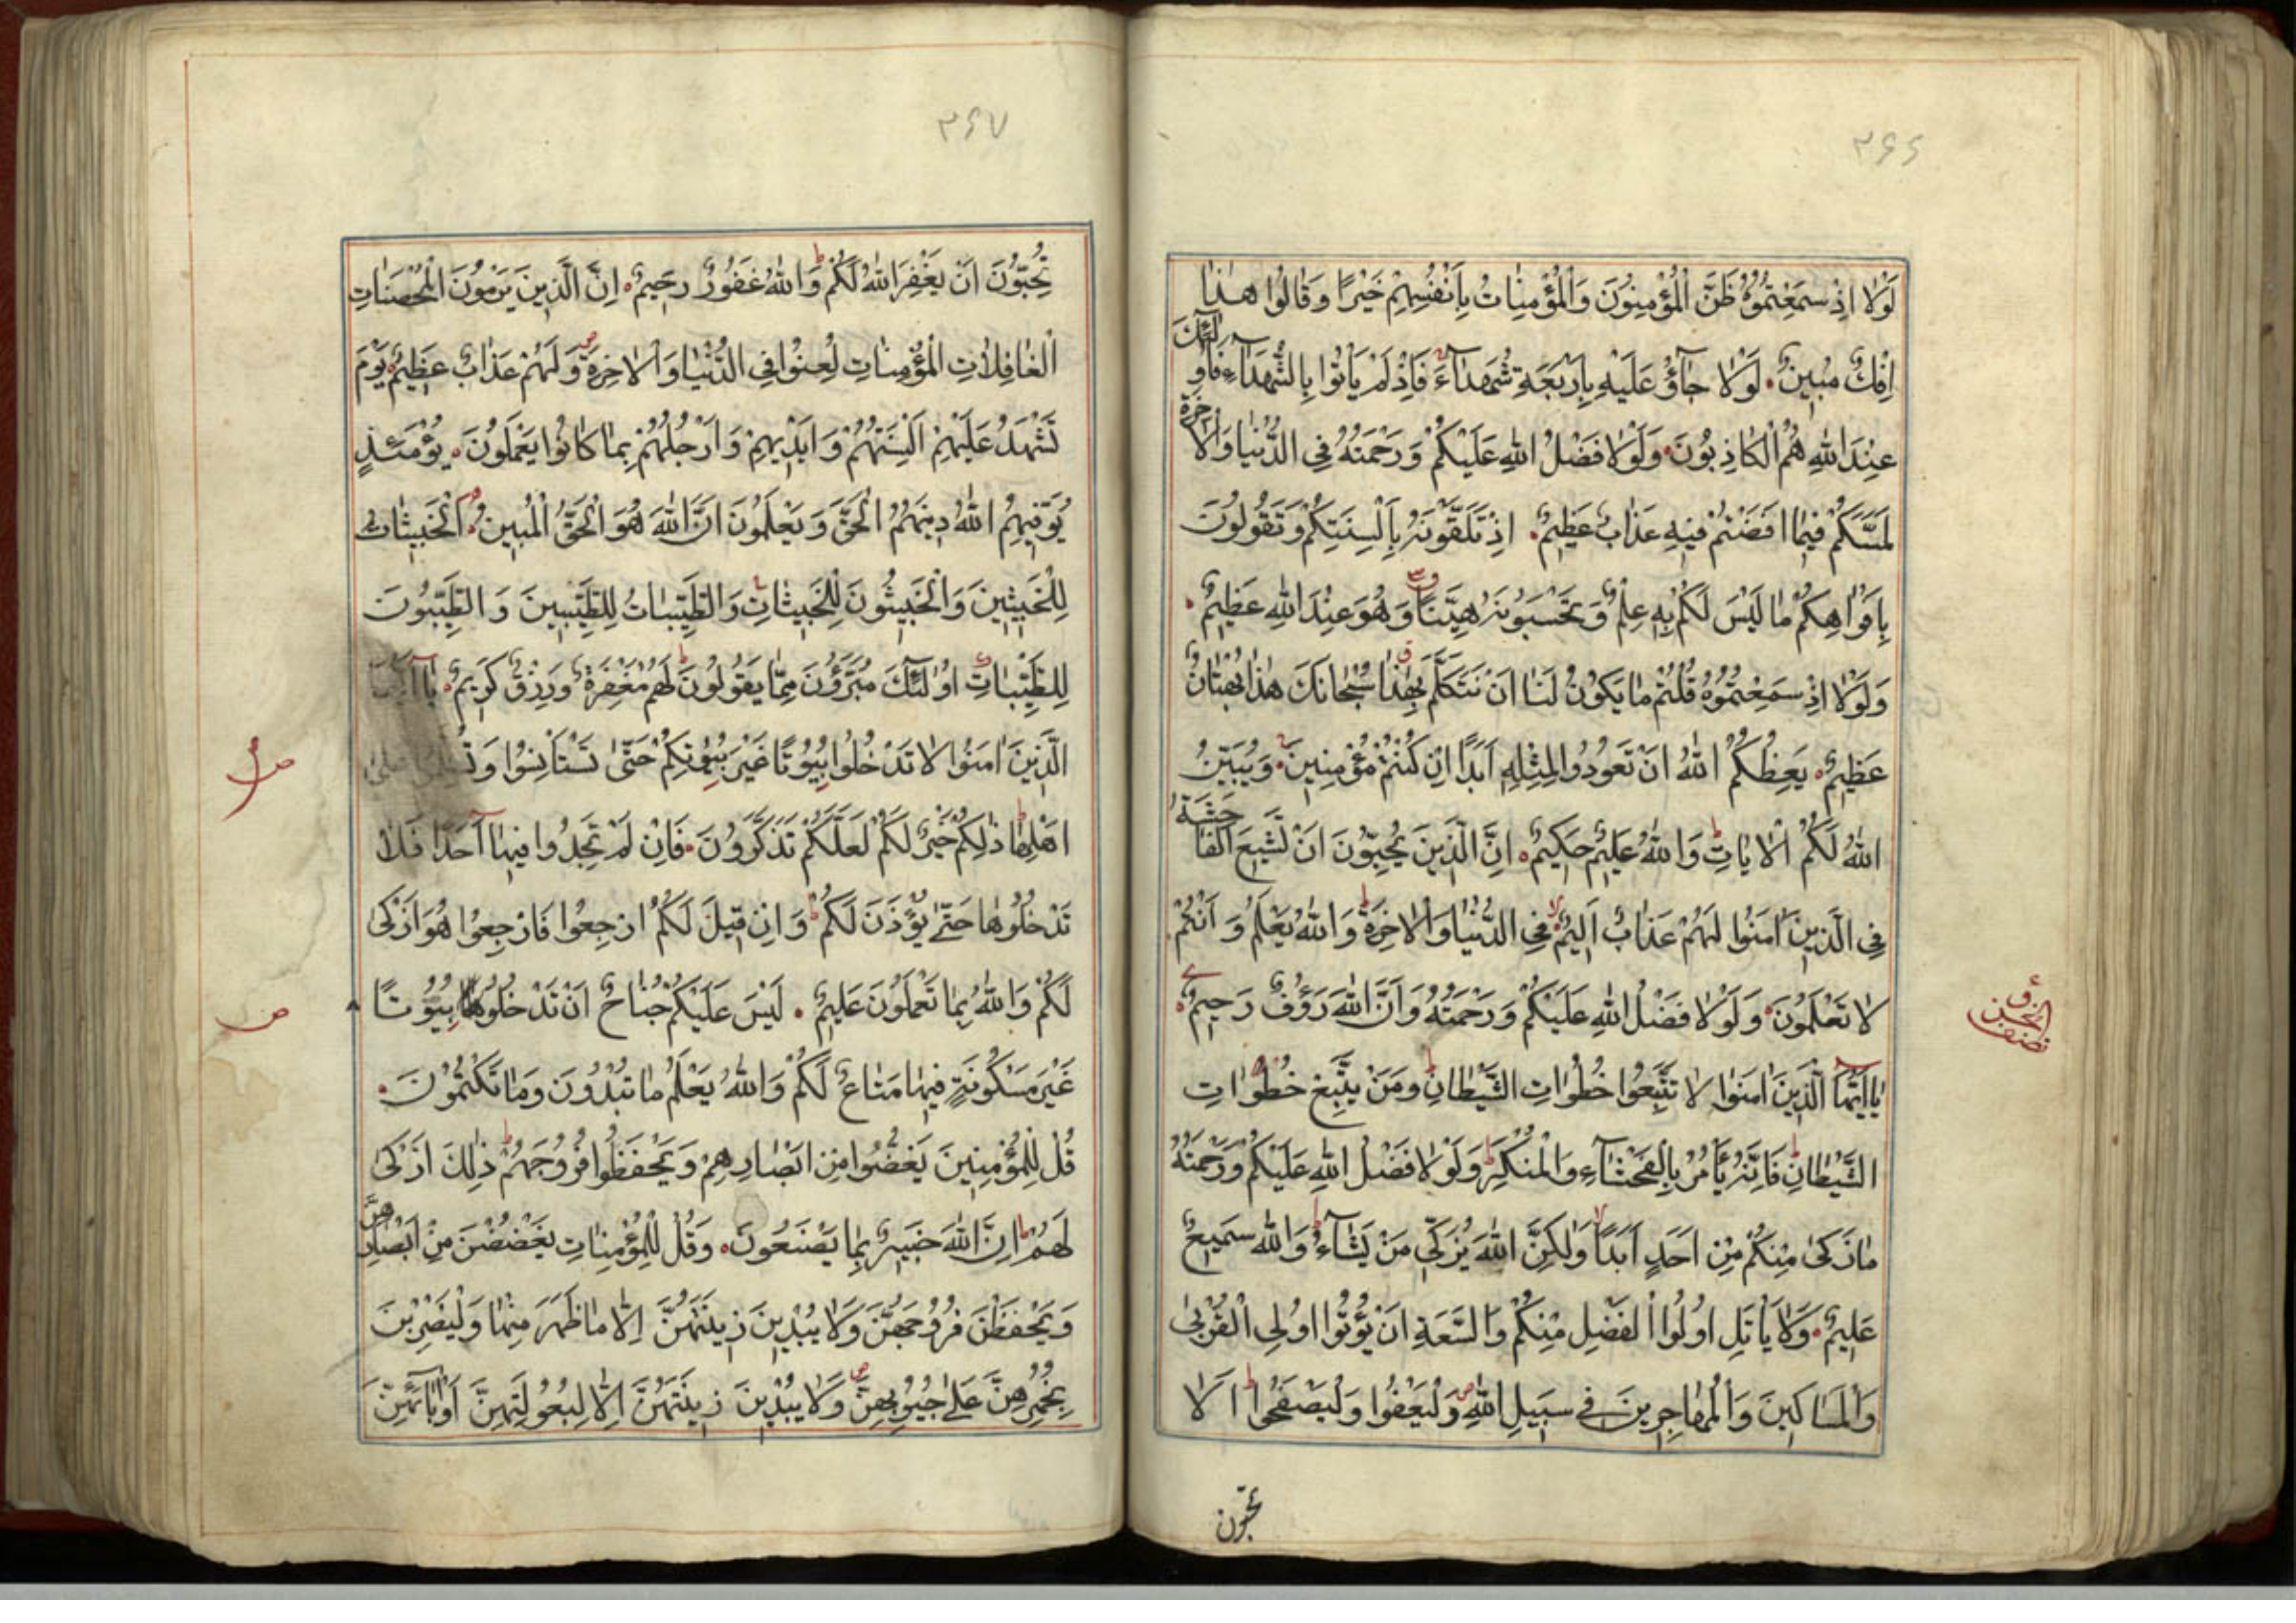 ۳۶۶
لَوْلا اِذْ سَمِعْتُمُوهُ ظَنَّ الْمُؤْمِنُونَ وَالْمُؤْمِناتُ بِاَنْفُسِهِمْ خَيْرًا وَقالُوا هٰذا
اِفْكٌ مُبينٌ لَوْلا جآؤُ عَلَيْهِ بِاَرْبَعَةِ شُهَدآءَ فَاِذْ لَمْ يَأْتُوا بِالشُّهَدآءِ فَاُولٰٓئِكَ
عِنْدَ اللّٰهِ هُمُ الْكاذِبُونَ وَلَوْلا فَضْلُ اللّٰهِ عَلَيْكُمْ وَرَحْمَتُهُ فِي الدُّنْيا وَالْاٰخِرَةِ
لَمَسَّكُمْ فيما اَفَضْتُمْ فيهِ عَذابٌ عَظيمٌ اِذْ تَلَقَّوْنَهُ بِاَلْسِنَتِكُمْ وَتَقُولُونَ
بِاَفْواهِكُمْ ما لَيْسَ لَكُمْ بِهِ عِلْمٌ وَتَحْسَبُونَهُ هَيِّنًا وَهُوَ عِنْدَ اللّٰهِ عَظيمٌ
وَلَوْلا اِذْ سَمِعْتُمُوهُ قُلْتُمْ ما يَكُونُ لَنا اَنْ نَتَكَلَّمَ بِهٰذا سُبْحانَكَ هٰذا بُهْتانٌ
عَظيمٌ يَعِظُكُمُ اللّٰهُ اَنْ تَعُودُوا لِمِثْلِهِ اَبَدًا اِنْ كُنْتُمْ مُؤْمِنينَ وَيُبَيِّنُ
اللّٰهُ لَكُمُ الْاٰياتِ وَاللّٰهُ عَليمٌ حَكيمٌ اِنَّ الَّذينَ يُحِبُّونَ اَنْ تَشيعَ الْفاحِشَةُ
فِي الَّذينَ اٰمَنُوا لَهُمْ عَذابٌ اَليمٌ فِي الدُّنْيا وَالْاٰخِرَةِ وَاللّٰهُ يَعْلَمُ وَاَنْتُمْ
لا تَعْلَمُونَ وَلَوْلا فَضْلُ اللّٰهِ عَلَيْكُمْ وَرَحْمَتُهُ وَاَنَّ اللّٰهَ رَؤُفٌ رَحيمٌ
يٰا اَيُّهَا الَّذينَ اٰمَنُوا لا تَتَّبِعُوا خُطُواتِ الشَّيْطانِ وَمَنْ يَتَّبِعْ خُطُواتِ
الشَّيْطانِ فَاِنَّهُ يَأْمُرُ بِالْفَحْشآءِ وَالْمُنْكَرِ وَلَوْلا فَضْلُ اللّٰهِ عَلَيْكُمْ وَرَحْمَتُهُ
ما زَكٰى مِنْكُمْ مِنْ اَحَدٍ اَبَدًا وَلٰكِنَّ اللّٰهَ يُزَكّي مَنْ يَشآءُ وَاللّٰهُ سَميعٌ
عَليمٌ وَلا يَأْتَلِ اُولُوا الْفَضْلِ مِنْكُمْ وَالسَّعَةِ اَنْ يُؤْتُوا اُولِي الْقُرْبٰى
وَالْمَساكينَ وَالْمُهاجِرينَ في سَبيلِ اللّٰهِ وَلْيَعْفُوا وَلْيَصْفَحُوا اَلا
تحبّون
۳۶۷
تُحِبُّونَ اَنْ يَغْفِرَ اللّٰهُ لَكُمْ وَاللّٰهُ غَفُورٌ رَحيمٌ اِنَّ الَّذينَ يَرْمُونَ الْمُحْصَناتِ
الْغافِلاتِ الْمُؤْمِناتِ لُعِنُوا فِي الدُّنْيا وَالْاٰخِرَةِ وَلَهُمْ عَذابٌ عَظيمٌ يَوْمَ
تَشْهَدُ عَلَيْهِمْ اَلْسِنَتُهُمْ وَاَيْديهِمْ وَاَرْجُلُهُمْ بِما كانُوا يَعْمَلُونَ يَوْمَئِذٍ
يُوَفّيهِمُ اللّٰهُ دينَهُمُ الْحَقَّ وَيَعْلَمُونَ اَنَّ اللّٰهَ هُوَ الْحَقُّ الْمُبينُ اَلْخَبيثاتُ
لِلْخَبيثينَ وَالْخَبيثُونَ لِلْخَبيثاتِ وَالطَّيِّباتُ لِلطَّيِّبينَ وَالطَّيِّبُونَ
لِلطَّيِّباتِ اُولٰٓئِكَ مُبَرَّؤُنَ مِمّا يَقُولُونَ لَهُمْ مَغْفِرَةٌ وَرِزْقٌ كَريمٌ يٰا اَيُّهَا
الَّذينَ اٰمَنُوا لا تَدْخُلُوا بُيُوتًا غَيْرَ بُيُوتِكُمْ حَتّٰى تَسْتَأْنِسُوا وَتُسَلِّمُوا عَلٰى
اَهْلِها ذٰلِكُمْ خَيْرٌ لَكُمْ لَعَلَّكُمْ تَذَكَّرُونَ فَاِنْ لَمْ تَجِدُوا فيهآ اَحَدًا فَلا
تَدْخُلُوها حَتّٰى يُؤْذَنَ لَكُمْ وَاِنْ قيلَ لَكُمُ ارْجِعُوا فَارْجِعُوا هُوَ اَزْكٰى
لَكُمْ وَاللّٰهُ بِما تَعْمَلُونَ عَليمٌ لَيْسَ عَلَيْكُمْ جُناحٌ اَنْ تَدْخُلُوا بُيُوتًا
غَيْرَ مَسْكُونَةٍ فيها مَتاعٌ لَكُمْ وَاللّٰهُ يَعْلَمُ ما تُبْدُونَ وَما تَكْتُمُونَ
قُلْ لِلْمُؤْمِنينَ يَغُضُّوا مِنْ اَبْصارِهِمْ وَيَحْفَظُوا فُرُوجَهُمْ ذٰلِكَ اَزْكٰى
لَهُمْ اِنَّ اللّٰهَ خَبيرٌ بِما يَصْنَعُونَ وَقُلْ لِلْمُؤْمِناتِ يَغْضُضْنَ مِنْ اَبْصارِهِنَّ
وَيَحْفَظْنَ فُرُوجَهُنَّ وَلا يُبْدينَ زينَتَهُنَّ اِلّا ما ظَهَرَ مِنْها وَلْيَضْرِبْنَ
بِخُمُرِهِنَّ عَلٰى جُيُوبِهِنَّ وَلا يُبْدينَ زينَتَهُنَّ اِلّا لِبُعُولَتِهِنَّ اَوْ اٰبآئِهِنَّ